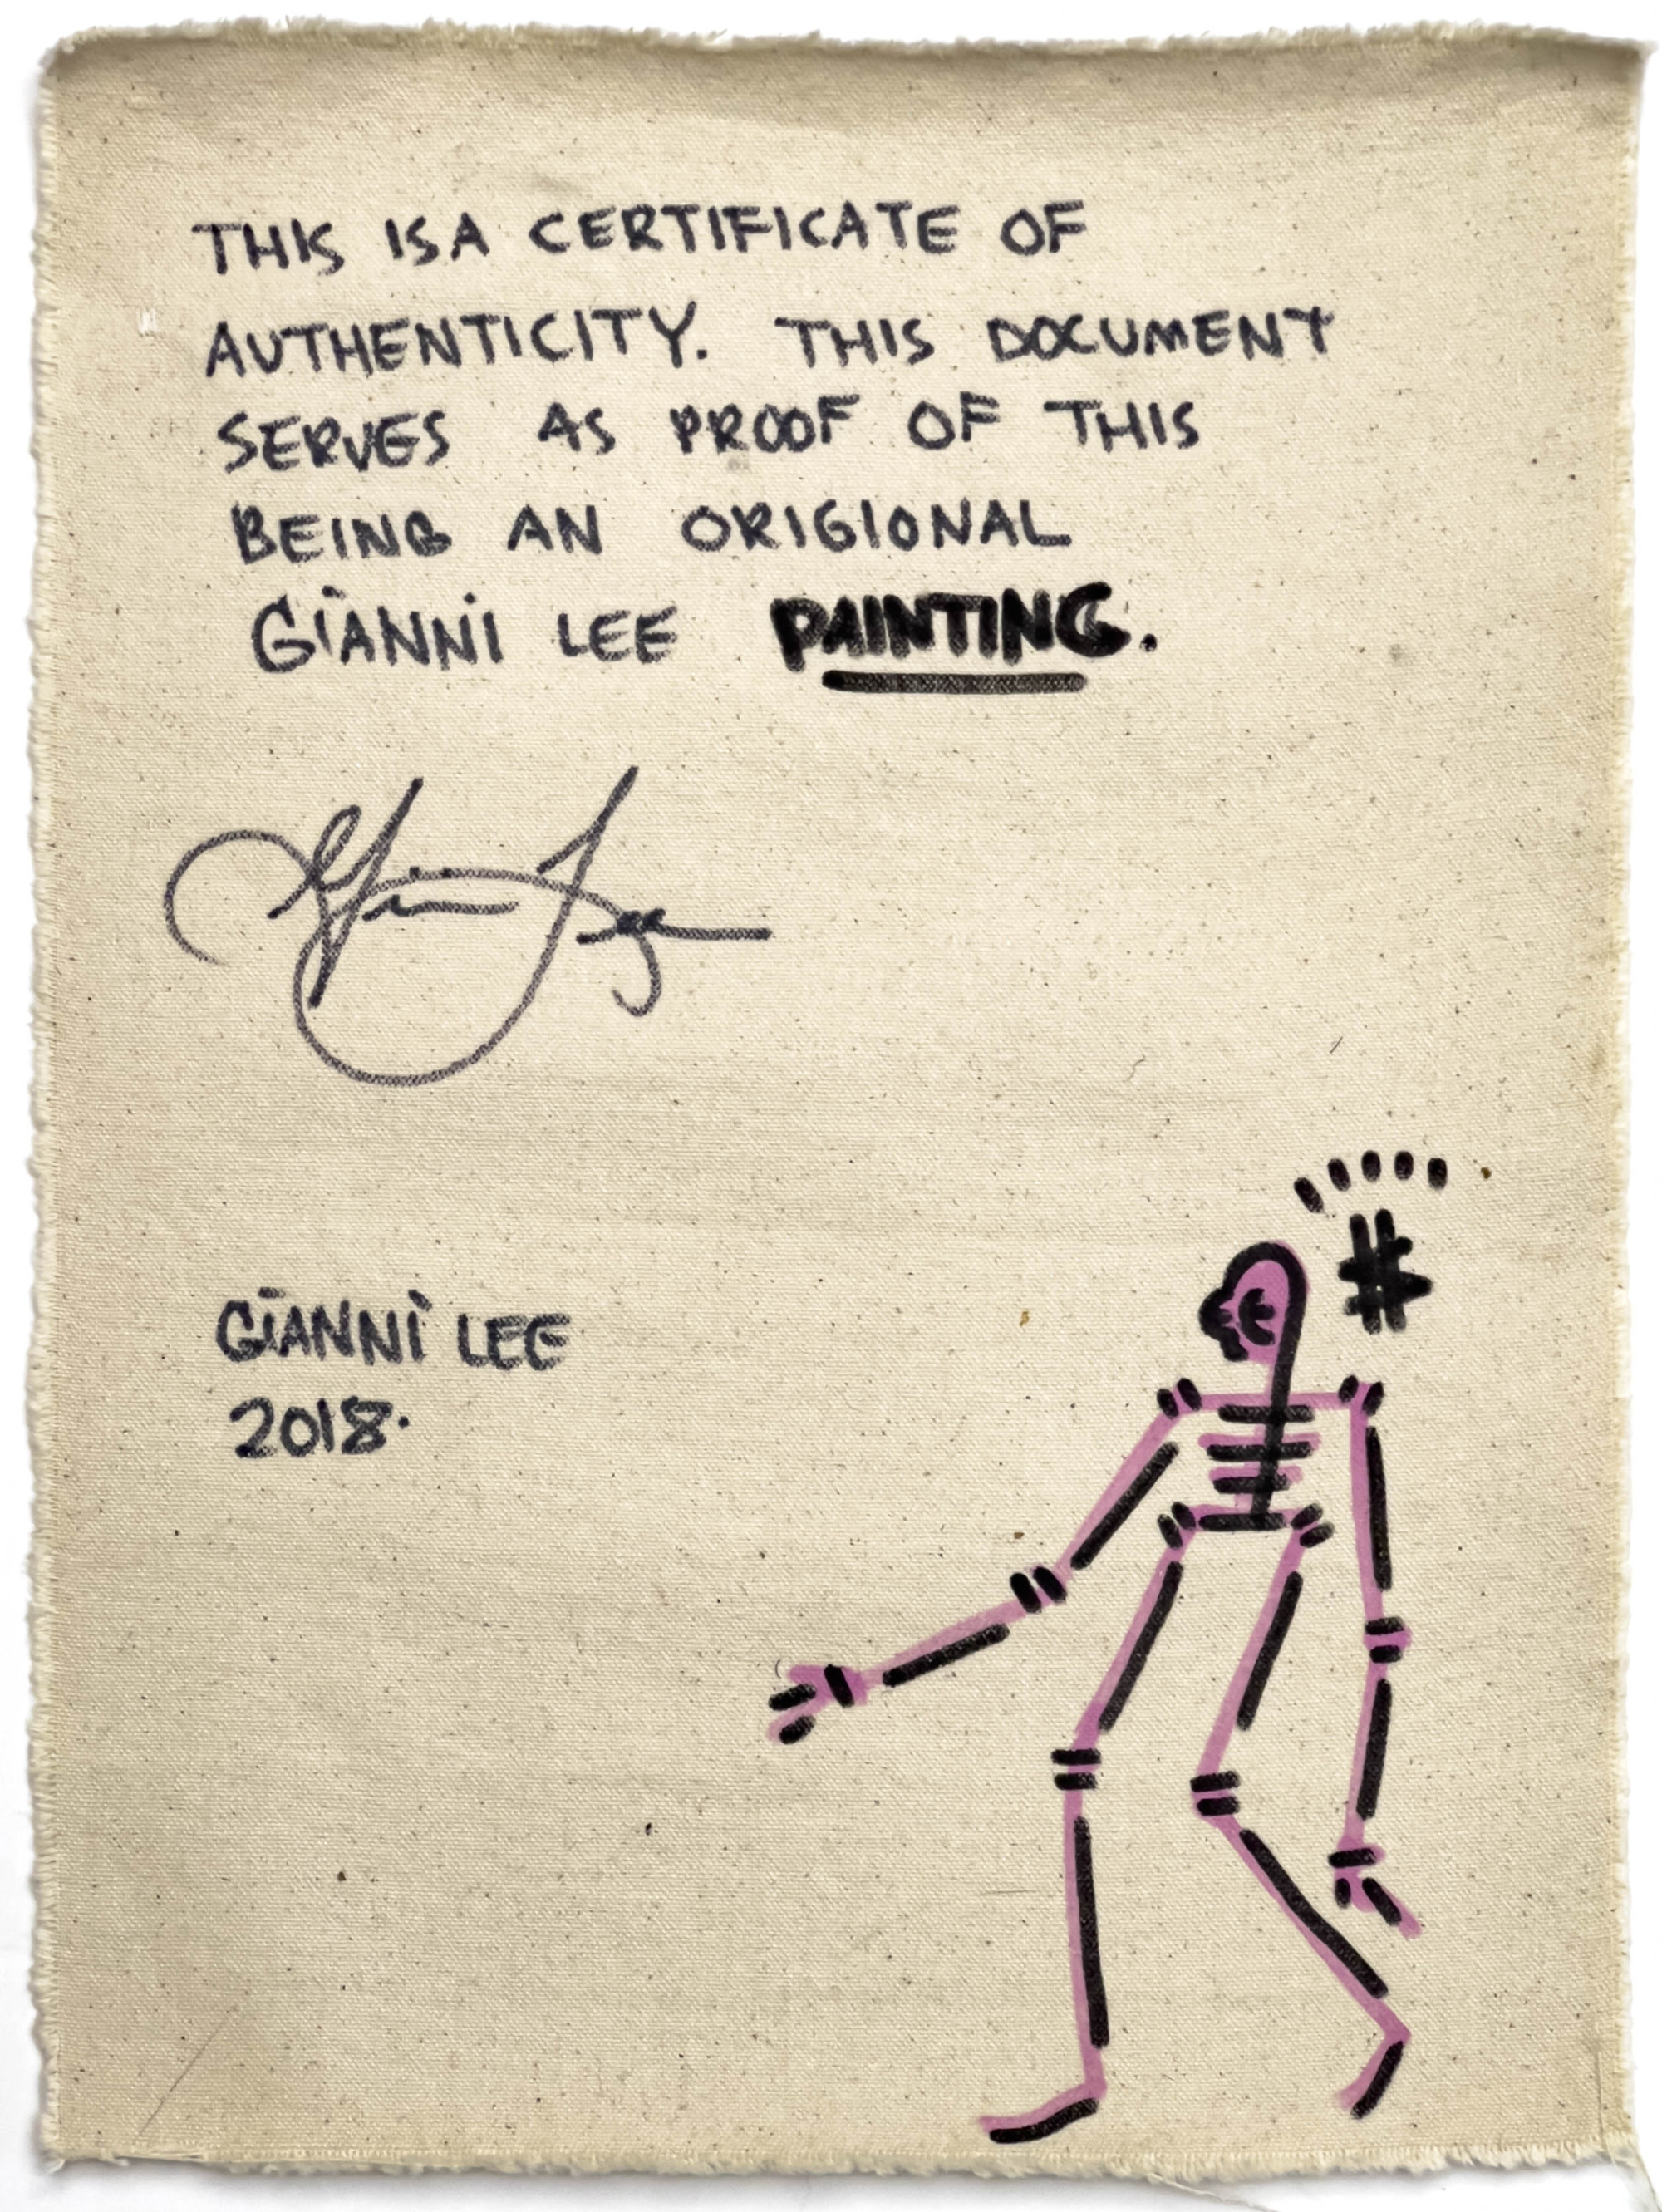 THIS IS A CERTIFICATE OF
AUTHENTICITY. THIS DOCUMENT
SERVES AS PROOF OF THIS
BEING AN ORIGIONAL
GIANNI LEE PAINTING.
Gianni Lee
#
GIANNI LEE
2018.